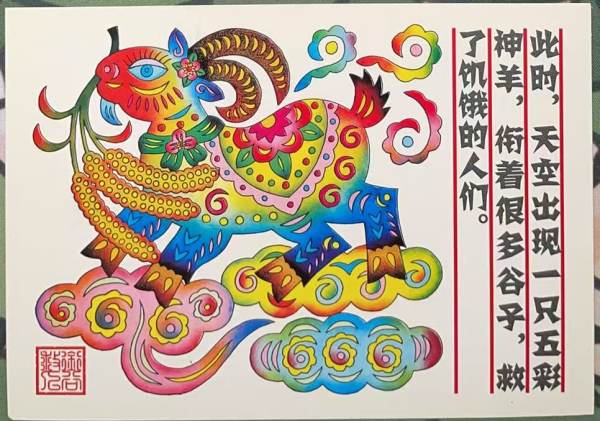 此时，天空出现一只五彩
神羊，衔着很多谷子，救
了饥饿的人们。
衔谷
救人